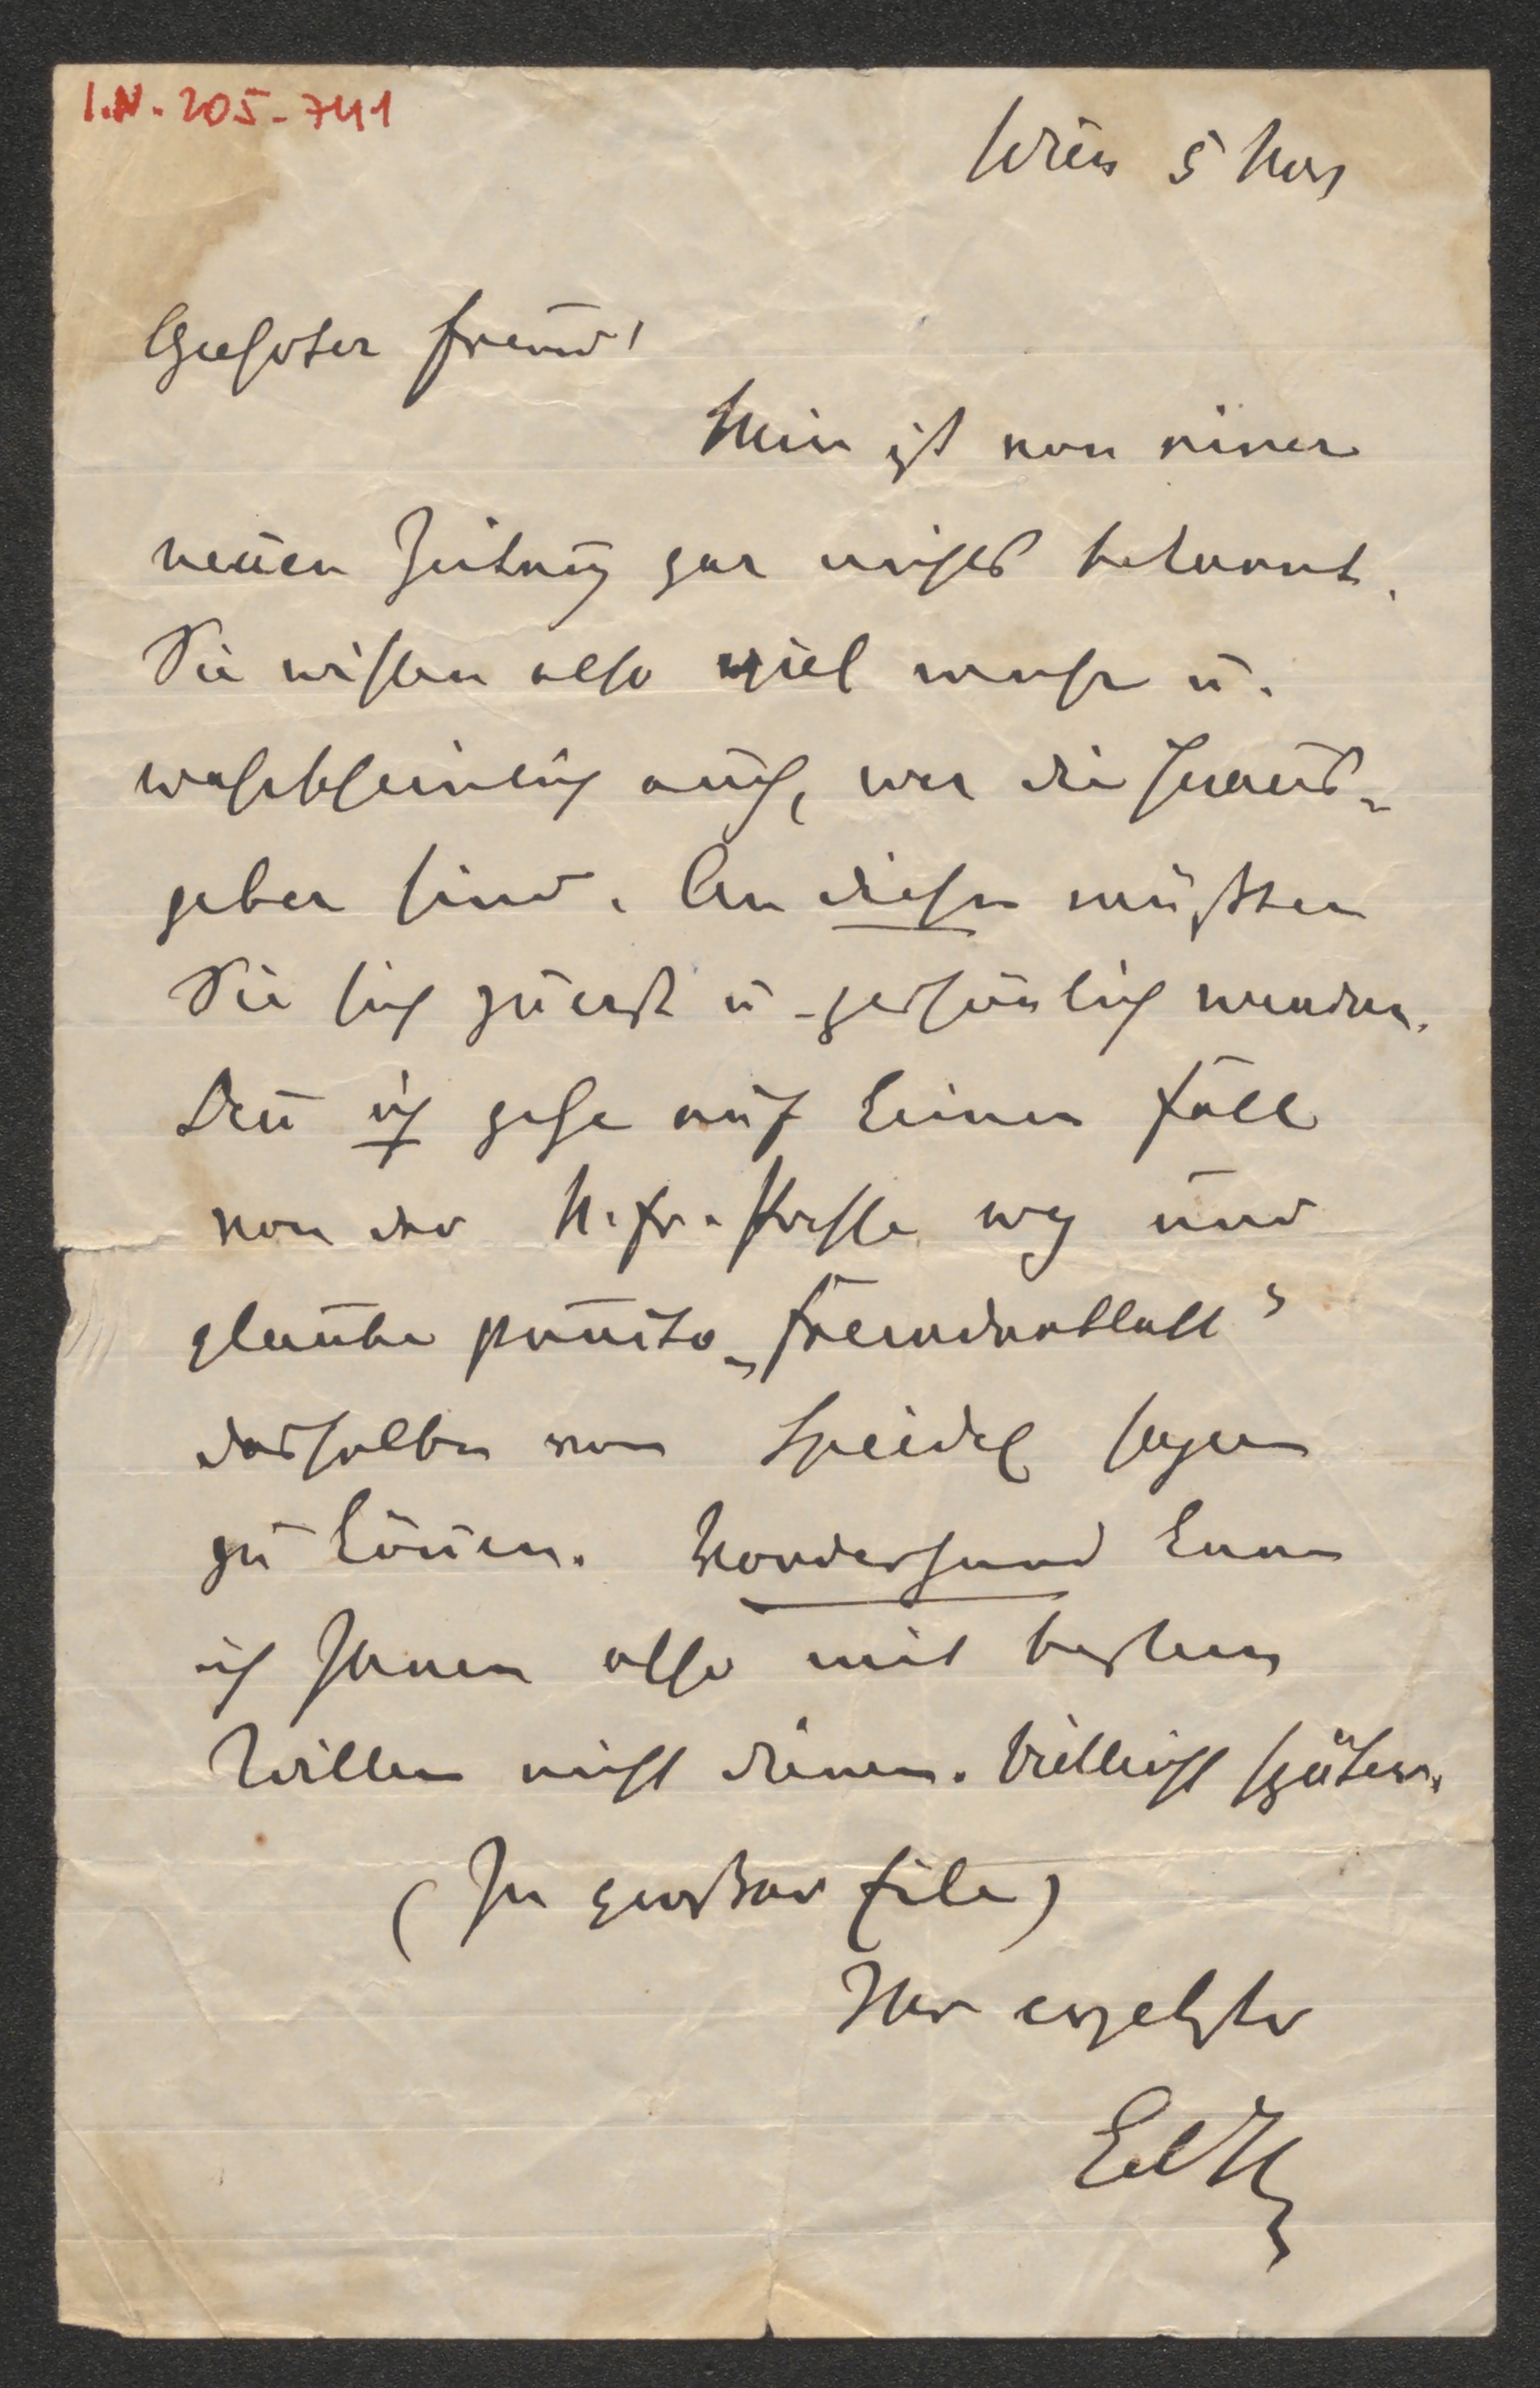 I.N. 205-741
Wien 5 Nov
Geehrter Freund!
Mir ist von einer
neuen Zeitung gar nichts bekannt.
Sie wissen also viel mehr u.
wahrscheinlich auch, wer die Heraus-
geber sind. An diese müßten
Sie sich zuerst u. persönlich wenden.
Den̄ ich gehe auf keinen Fall
von der N. Fr. Presse weg und
glaube puncto „Fremdenblatt"
dasselbe von Speidel sagen
zu kön̄en. Vorderhand kann
ich Ihnen also mit bestem
Willen nicht dienen. Vielleicht später.
(In großer Eile)
Ihr ergebster
Ed H